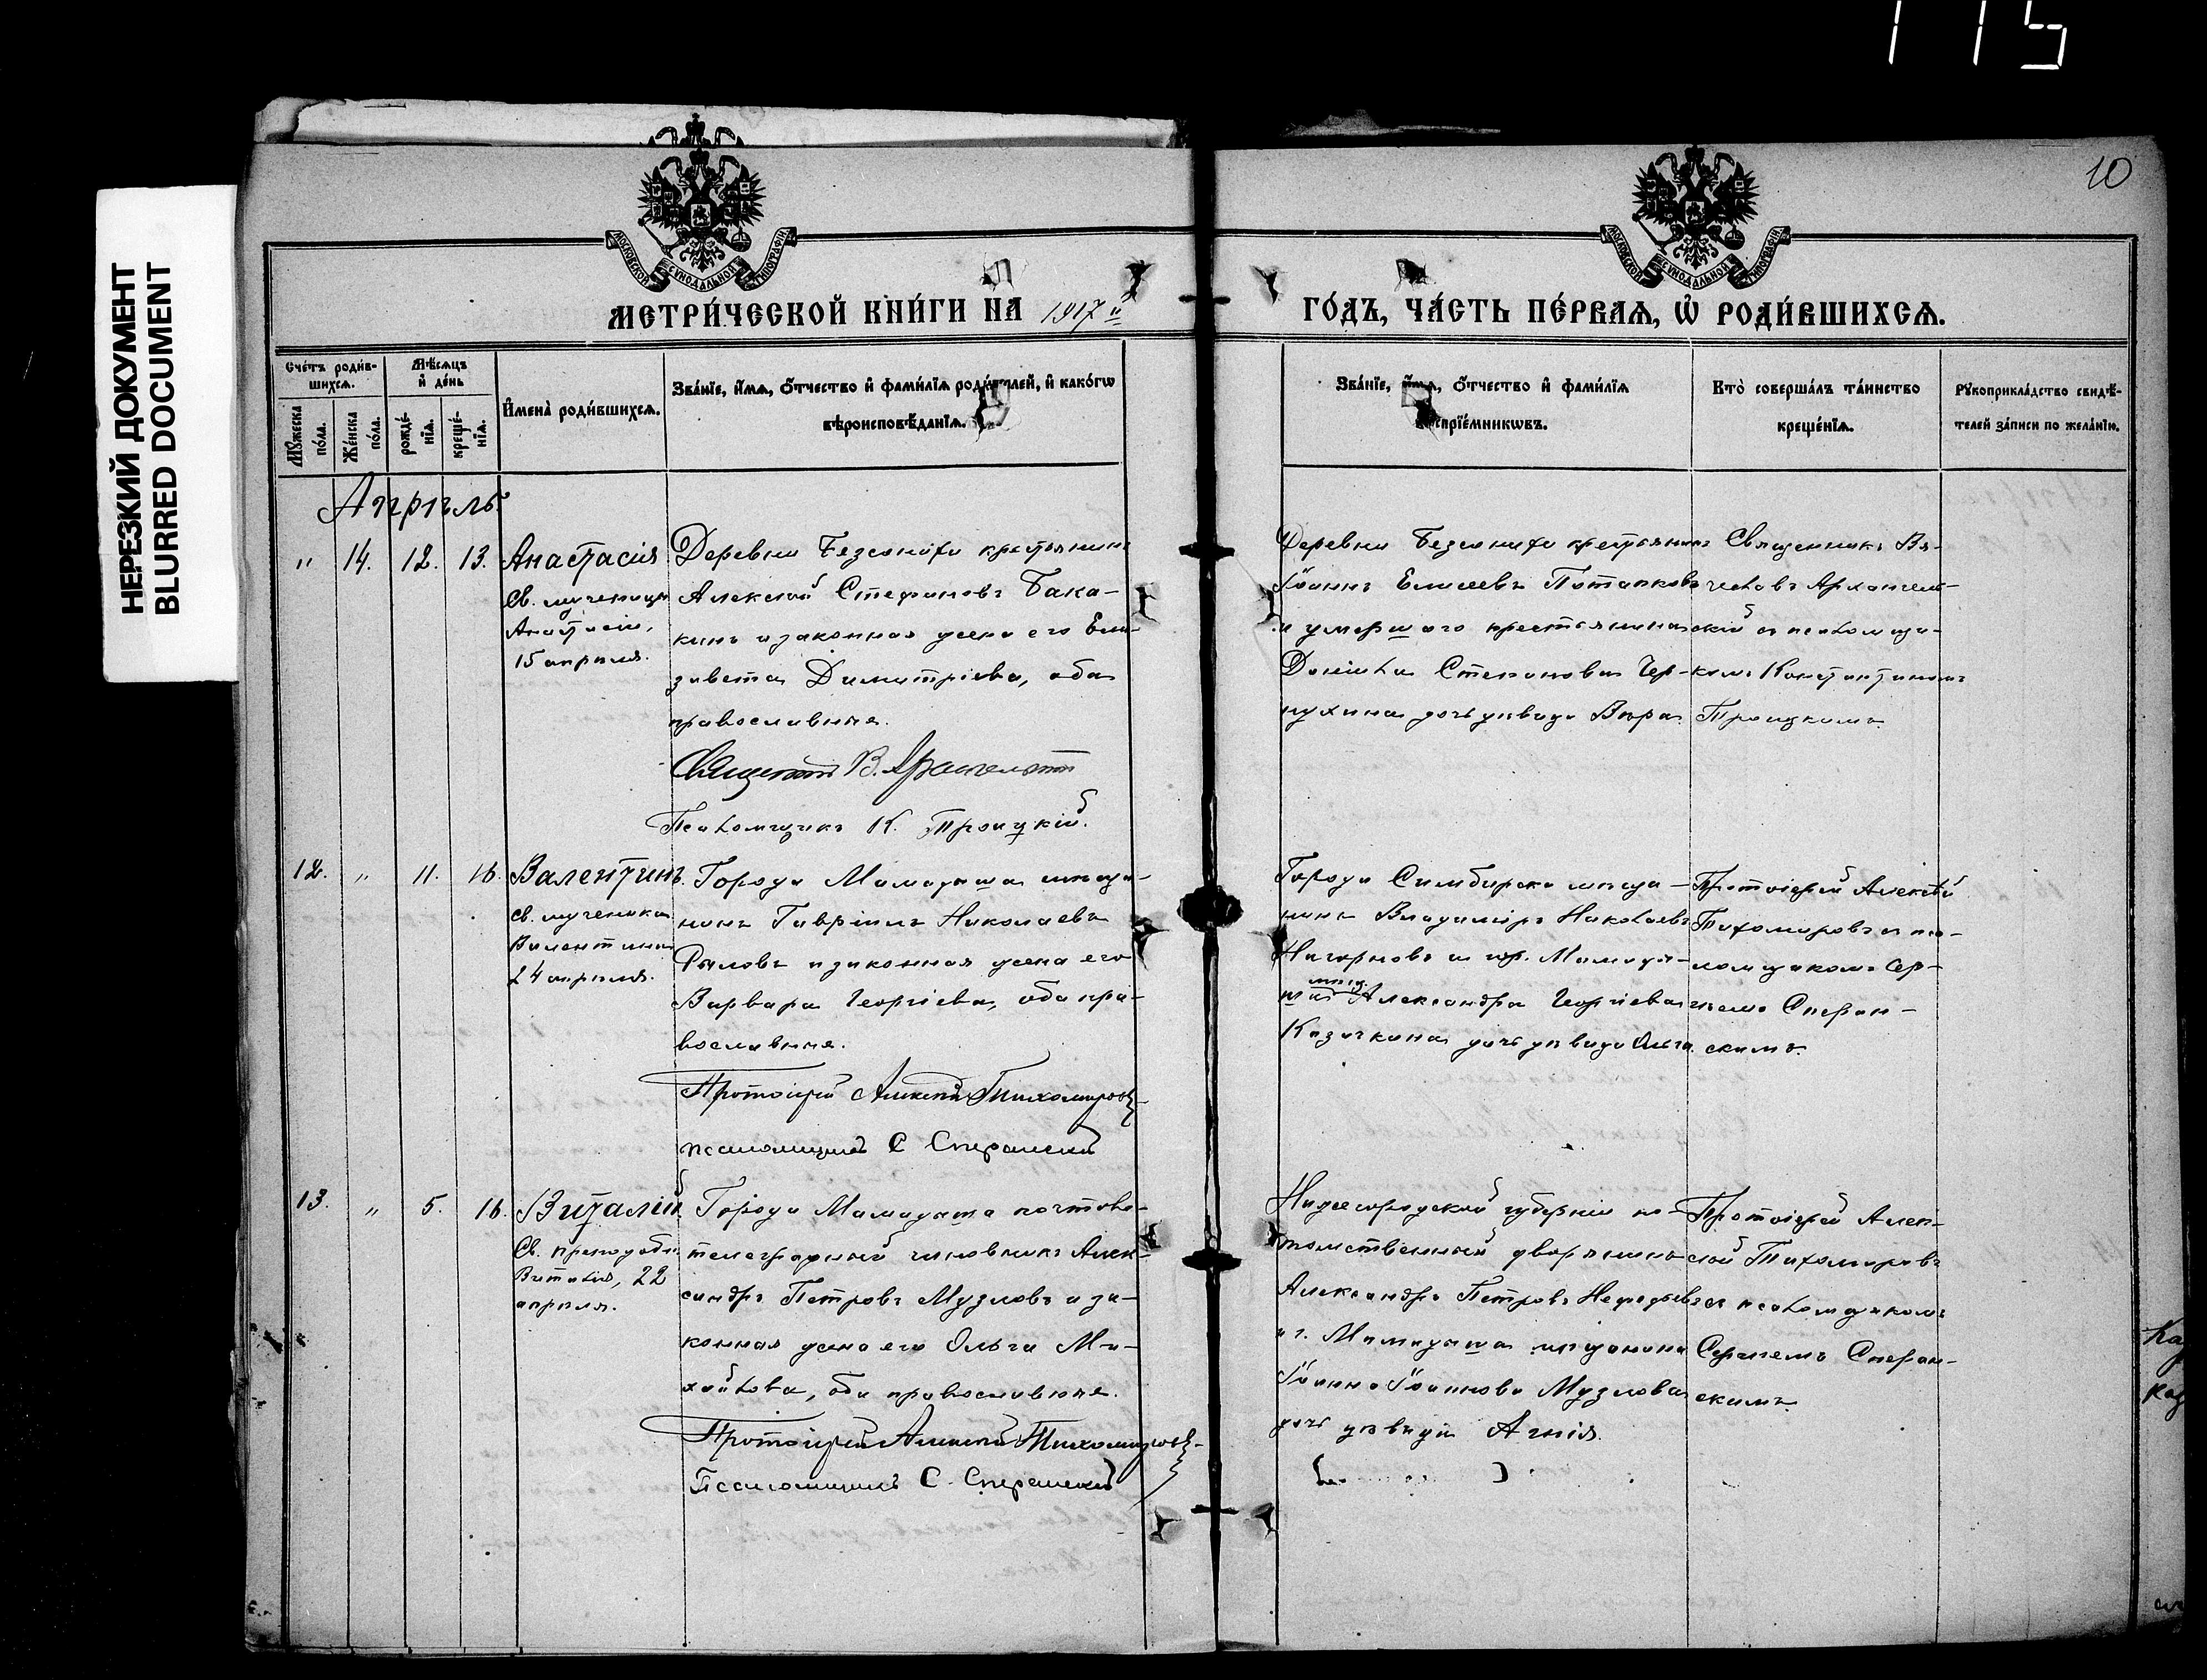 115
НЕРЕЗКИЙ ДОКУМЕНТ
BLURRED DOCUMENT
10
МОСКОВСКОЙ СУНОДАЛЬНОЙ ТИПОГРАФІИ
МОСКОВСКОЙ СУНОДАЛЬНОЙ ТИПОГРАФІИ
МЕТРИ́ЧЕСКОЙ КНИ́ГИ НА 1917 й
ГО́ДЪ, ЧА́СТЬ ПЕ́РВАѦ, Ѡ҆ РОДИ́ВШИХСѦ.
Сче́тъ роди́в-
шихсѧ.
Мꙋ́жеска по́ла.
Же́нска по́ла.
Мѣ́сѧцъ
и҆ де́нь
рожде́-
нїѧ.
креще́-
нїѧ.
И҆мена̀ роди́вшихсѧ.
Зва́нїе, и҆́мѧ, ѻ҆́тчество и҆ фами́лїѧ роди́телей, и҆ како́гѡ
вѣроисповѣ́данїѧ.
Зва́нїе, и҆́мѧ, ѻ҆́тчество и҆ фами́лїѧ
воспрїе́мникѡвъ.
Кто̀ соверша́лъ та́инство
креще́нїѧ.
Рꙋкоприкла́дство свидѣ́-
телей за́писи по жела́нїю.
Апрѣль.
" 14. 12. 13.
Анастасія
Св. мученицы
Анастасіи,
15 апрѣля.
Деревни крестьянинъ
Алексѣй Стефановъ Бака-
кинъ и законная жена его Ели-
завета Димитріева, оба
православные.
Священникъ В. Архангельскій
Псаломщикъ К. Троицкій.
Деревни крестьянинъ
Іоаннъ Елисеевъ Потапковъ
и умершаго крестьянина
Даніила Степанова Чер-
пухина дочь дѣвица Вѣра.
Священникъ Вя-
чеславъ Архангель-
скій съ псаломщи-
комъ Константиномъ
Троицкимъ.
12. " 11. 16.
Валентинъ.
Св. мученика
Валентина
24 апрѣля.
Города Мамадыша мѣща-
нинъ Гавріилъ Николаевъ
Рыловъ и законная жена его
Варвара Георгіева, оба пра-
вославные.
Протоіерей Алексѣй Тихомировъ
псаломщикъ С Сперанскій
Города Симбирска мѣща-
нинъ Владиміръ Николаевъ
Нагорновъ и гор. Мамады-
ша мѣщ. Александра Георгіева
Казачкина дочь дѣвица Ольга.
Протоіерей Алексѣй
Тихомировъ съ пса-
ломщикомъ Сер-
гѣемъ Сперан-
скимъ.
13. " 5. 16.
Виталій.
Св. преподобн.
Виталія, 22
апрѣля.
Города Мамадыша почтово-
телеграфный чиновникъ Алек-
сандръ Петровъ Музловъ и за-
конная жена его Ольга Ми-
хайлова, оба православные.
Протоіерей Алексѣй Тихомировъ
Псаломщикъ С. Сперанскій
Нижегородской губерніи по-
томственный дворянинъ
Александръ Петровъ Нефедьевъ
и г. Мамадыша мѣщанина
Іоанна Іоаннова Музлова
дочь дѣвица Агнія.
Протоіерей Алек-
сѣй Тихомировъ
съ псаломщикомъ
Сергѣемъ Сперан-
скимъ.